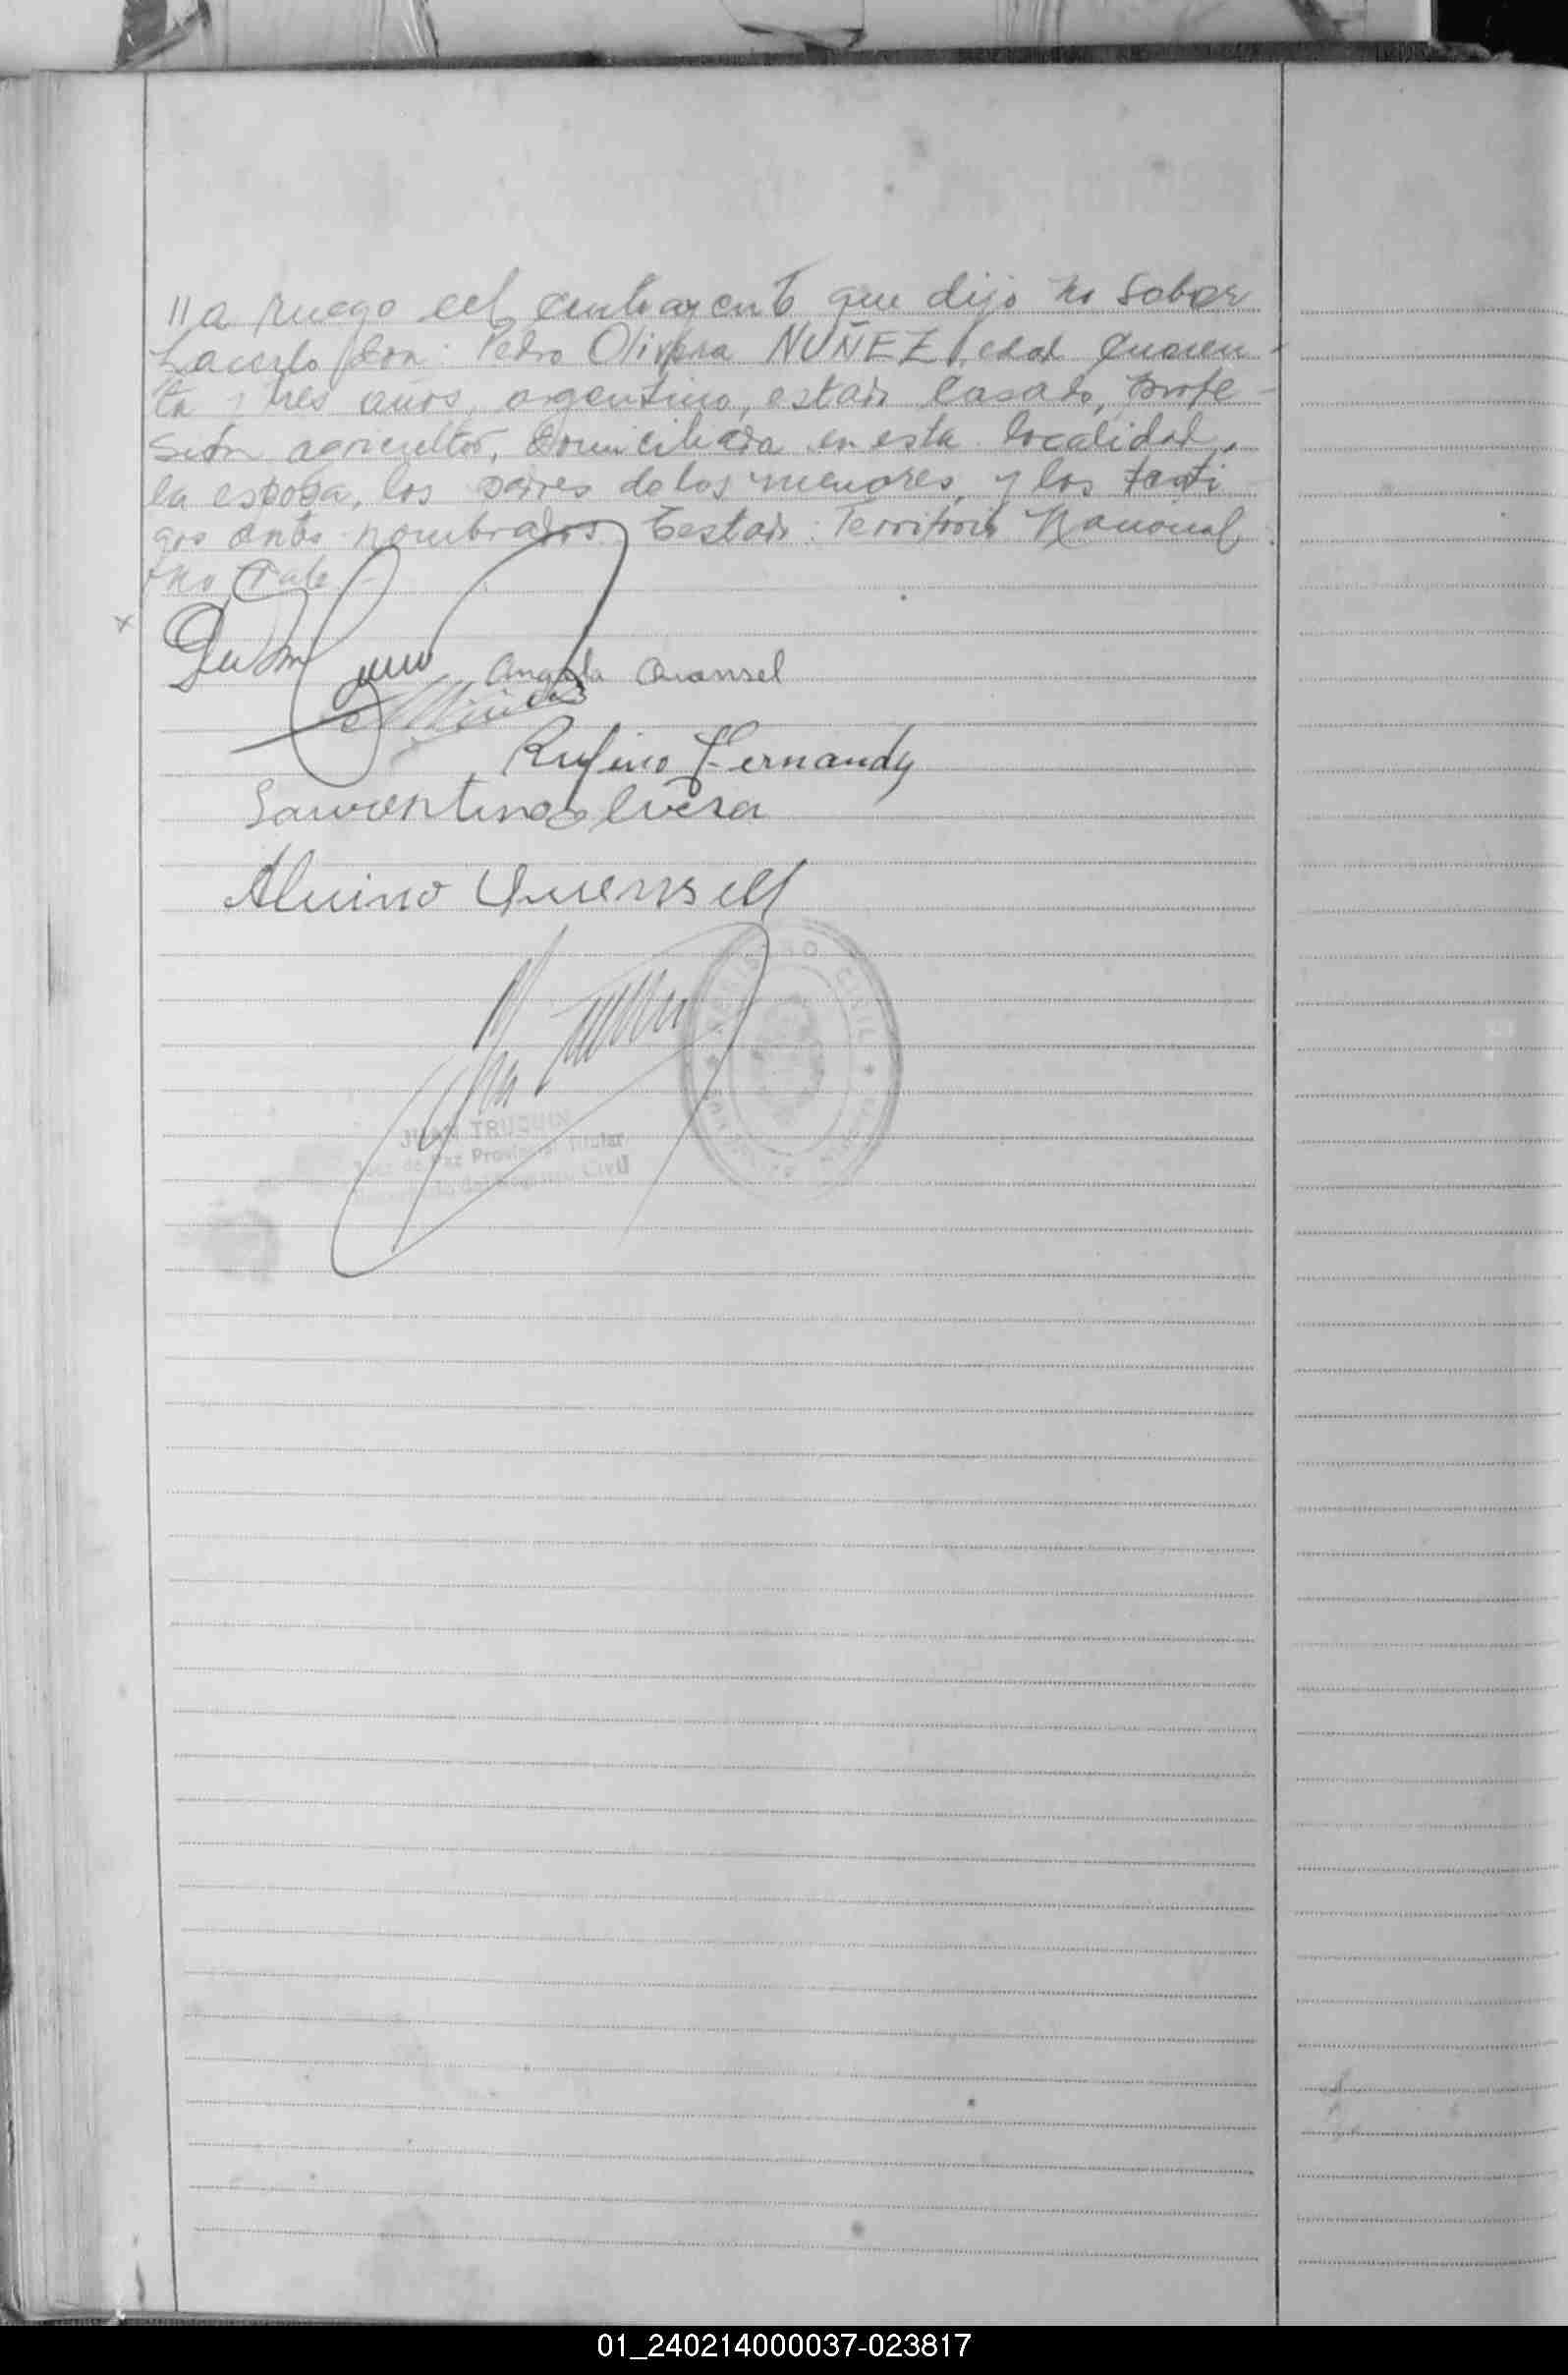 // a ruego del contrayente que dijo no saber
hacerlo don: Pedro Olivera NUÑEZ, edad cuaren-
ta y tres años, argentino, estado casado, profe-
sión agricultor, domiciliado en esta localidad,
la esposa, los padres de los menores, y los testi
gos antes nombrados. Testado: Territorio Nacional:
no vale.-
Angela Quansel
Rufino Fernandz
Laurentino Olivera
Aluino Quensell
REGISTRO CIVIL
JUAN TRUQUIN
Juez de Paz Provincial Titular
Registro Civil
01_240214000037-023817